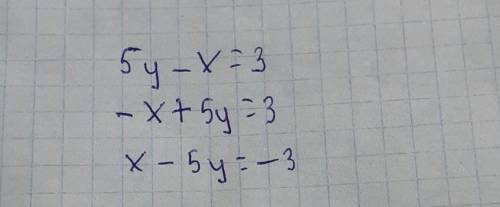 5y - x = 3
- x + 5y = 3
x - 5y = - 3